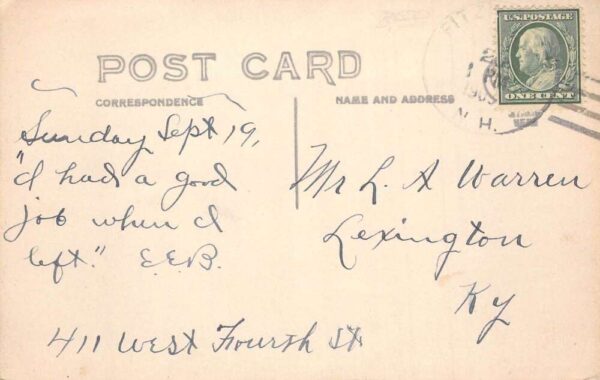 POST CARD
CORRESPONDENCE
NAME AND ADDRESS
U.S. POSTAGE
ONE CENT
1909
N.H.
Sunday Sept 19,
"I had a good
job when I
left." E.E.B.
Mr L. A Warren
Lexington
Ky
411 West Fourth St